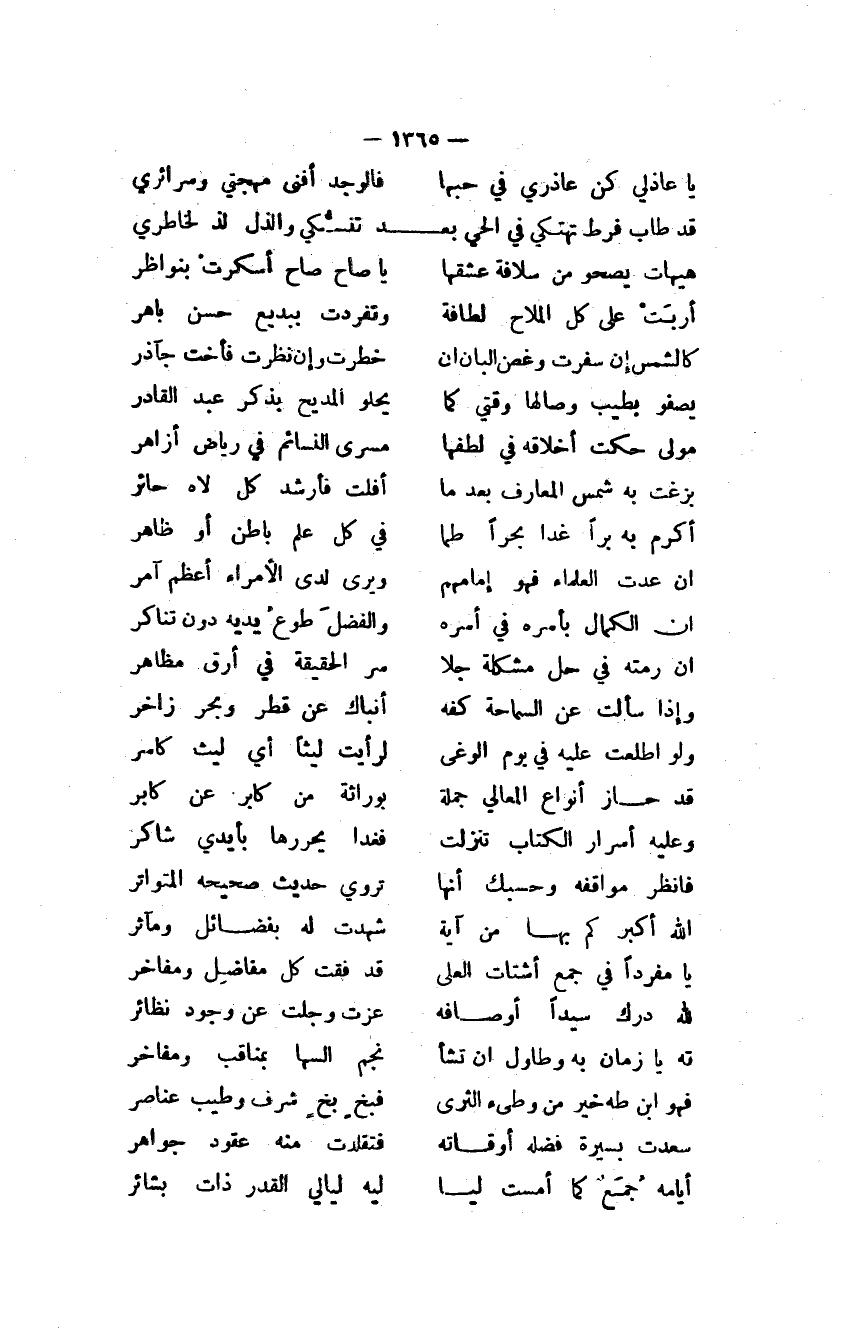 — ١٣٦٥ —
يا عاذلي كن عاذري في حبها فالوجد أفنى مهجتي وسرائري
قد طاب فرط تهتكي في الحي بعـــد تنسُّكي والذل لذ لخاطري
هيهات يصحو من سلافة عشقها يا صاح صاح أسكرتْ بنواظر
أربَتْ على كل الملاح لطافة وتفردت ببديع حسن باهر
كالشمس إن سفرت وغصن البان ان خطرت وإن نظرت فأخت جآذر
يصفو بطيب وصالها وقتي كما يحلو المديح بذكر عبد القادر
مولى حكت أخلاقه في لطفها مسرى النسائم في رياض أزاهر
بزغت به شمس المعارف بعد ما أفلت فأرشد كل لاه حائر
أكرم به براً غدا بحراً طما في كل علم باطن أو ظاهر
ان عدت العلماء فهو إمامهم ويرى لدى الأمراء أعظم آمر
ان الكمال بأمره في أسره والفضلَ طوعُ يديه دون تناكر
ان رمته في حل مشكلة جلا سر الحقيقة في أرق مظاهر
وإذا سألت عن السماحة كفه أنباك عن قطر وبحر زاخر
ولو اطلعت عليه في يوم الوغى لرأيت ليثاً أي ليث كاسر
قد حـــاز أنواع المعالي جملة بوراثة من كابر عن كابر
وعليه أسرار الكتاب تنزلت فغدا يحررها بأيدي شاكر
فانظر مواقفه وحسبك أنها تروي حديث صحيحه المتواتر
الله أكبر كم بهـــا من آية شهدت له بفضـــائل ومآثر
يا مفرداً في جمع أشتات العلى قد فقت كل مفاضل ومفاخر
لله درك سيداً أوصـــافه عزت وجلت عن وجود نظائر
ته يا زمان به وطاول ان تشأ نجم السها بمناقب ومفاخر
فهو ابن طه خير من وطىء الثرى فبخٍ بخٍ شرف وطيب عناصر
سعدت بسيرة فضله أوقـــاته فتقلدت منه عقود جواهر
أيامه جُمَعٌ كما أمست ليـــا ليه ليالي القدر ذات بشائر